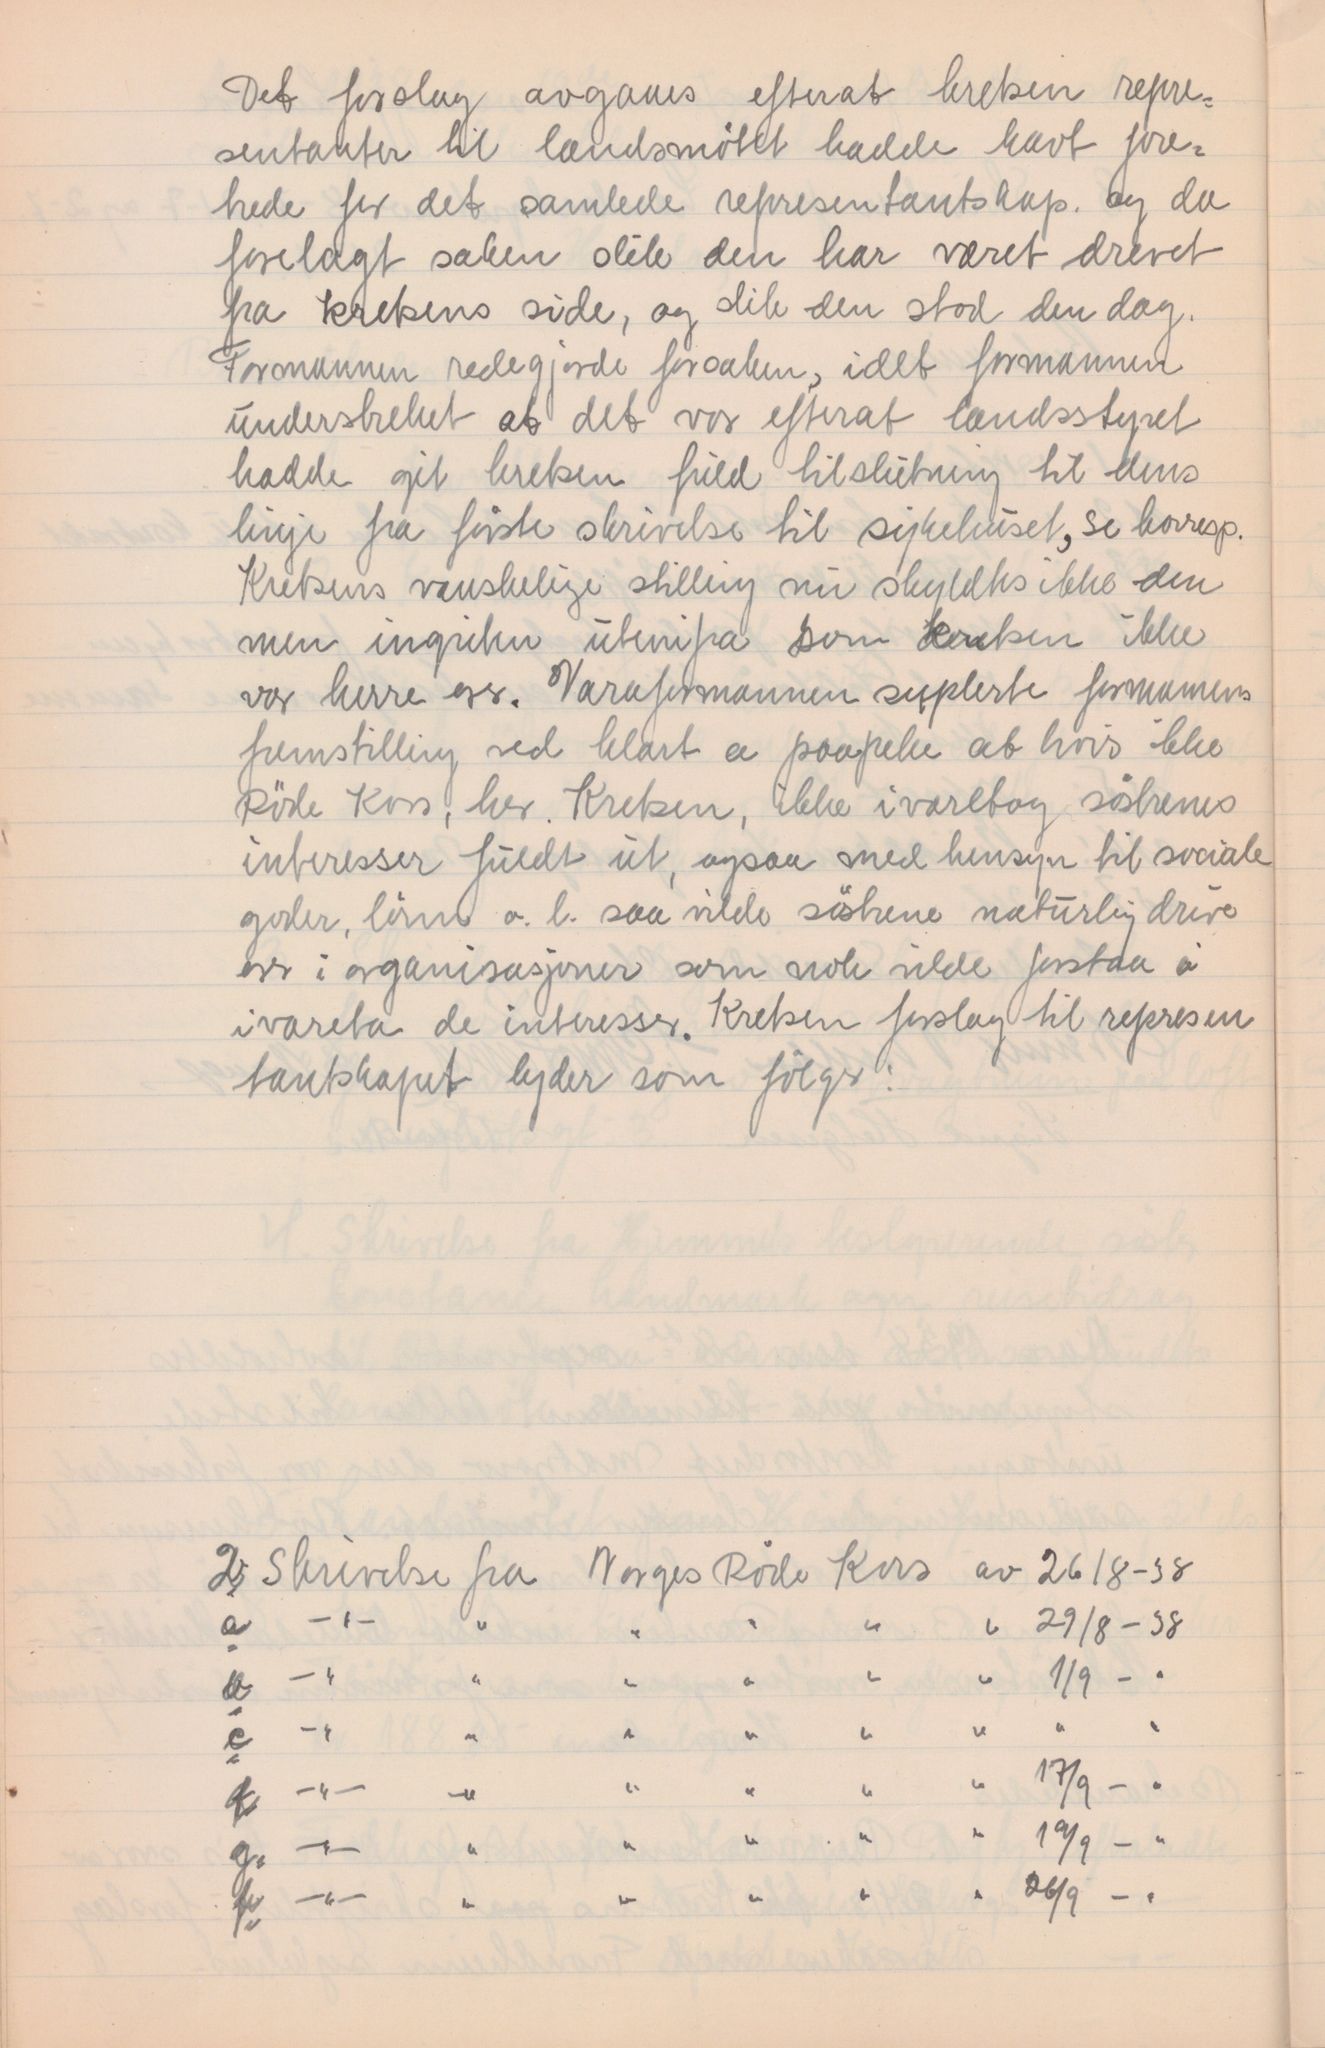 Det forslag avgaues efterat kretsen repre-
sentanter til landsmötet hadde havt fore-
trede for det samlede representantskap. og da
forelagt saken slik den har været drevet
fra kretsens side, og slik den stod den dag.
Formannen redegjorde for saken, idet formannen
understreket at det var efterat landsstyret
hadde git kretsen fuld tilslutning til dens
linje fra förste skrivelse til sykehuset, se korresp.
Kretsens vanskelige stilling nu skyldtes ikke den
men ingriken utenifra som kretsen ikke
var herre over. Varaformannen suplerte formannens
fremstilling ved klart a paapeke at hvis ikke
Röde Kors, her. Kretsen, ikke ivaretog söstrenes
interesser fuldt ut, ogsaa med hensyn til sociale
goder, lönn o. l. saa vilde söstrene naturlig drive
over i organisasjoner som nok vilde forstaa å
ivareta de interesser. Kretsen forslag til represen
tantskapet lyder som fölger:
2; Skrivelse fra Norges Röde Kors av 26/8-38
a -"- " " " " " 29/8-38
-" " " " " " 1/9 - "
c -" " " " " " " "
-"- " " " " " 17/9 - "
g. -"- " " " " " 19/9 - "
-"- " " " " " 26/9 - "